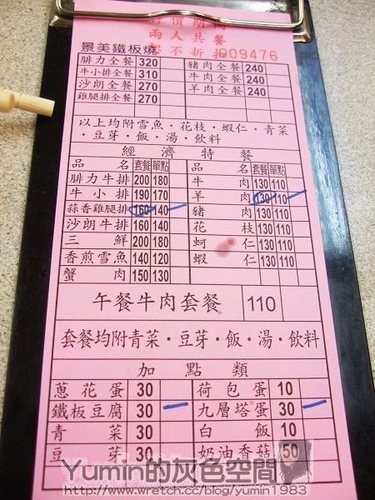 兩人共餐
景美鐵板燒 不折扣 009476
腓力全餐 320 豬肉全餐 240
牛小排全餐 310 牛肉全餐 240
沙朗全餐 270 羊肉全餐 240
雞腿排全餐 270
以上均附雪魚·花枝·蝦仁·青菜
·豆芽·飯·湯·飲料
經濟特餐
品名 套餐 單點 品名 套餐 單點
腓力牛排 200 180 牛肉 130 110
牛小排 190 170 羊肉 130 110
蒜香雞腿排 160 140 豬肉 130 110
沙朗牛排 160 140 花枝 130 110
三鮮 200 180 蚵仁 130 110
香煎雪魚 140 120 蝦仁 130 110
蟹肉 150 130
午餐牛肉套餐 110
套餐均附青菜·豆芽·飯·湯·飲料
加點類
蔥花蛋 30 荷包蛋 10
鐵板豆腐 30 九層塔蛋 30
青菜 30 白飯 10
豆芽 30 奶油香菇 50
Yumin的灰色空間
http://www.wretch.cc/blog/yumin1983